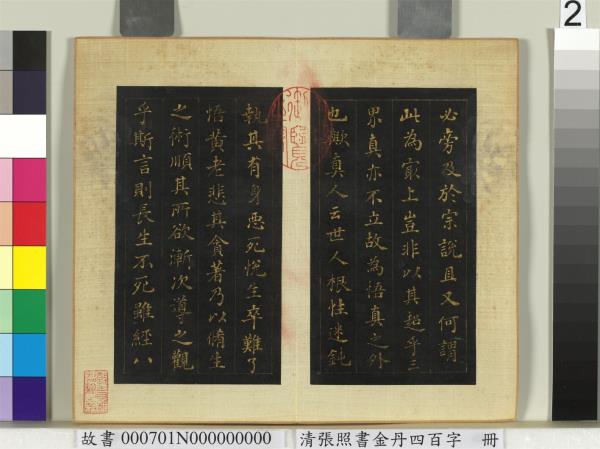 必旁及於宗說且又何謂
此為最上豈非以其超乎三
界真亦不立故為悟真之外
也歟真人云世人根性迷鈍
執其有身惡死悅生卒難了
悟黃老悲其貪著乃以脩生
之術順其所欲漸次導之觀
乎斯言則長生不死雖經八
2
故書 000701N000000000 清張照書金丹四百字 冊